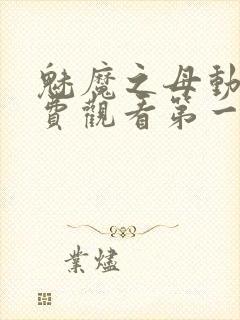 魅魔之母動
費觀看第一
業燼